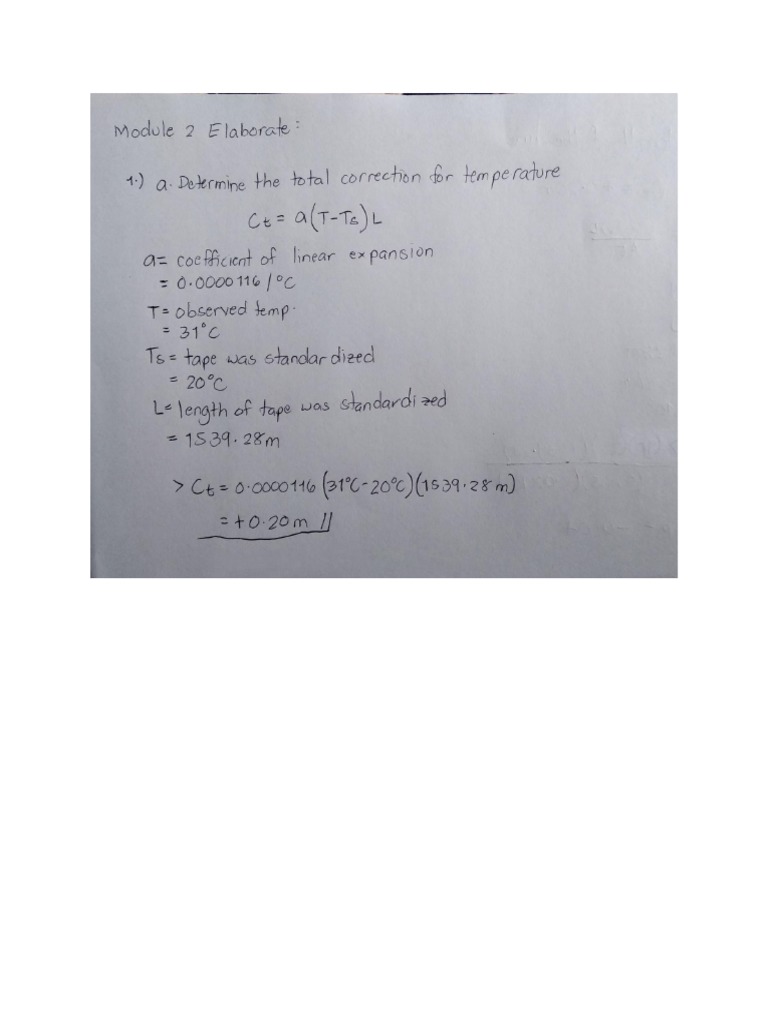 Module 2 Elaborate:
1.) a. Determine the total correction for temperature
Ct = a(T-Ts)L
a = coefficient of linear expansion
= 0.0000116/°C
T = observed temp.
= 31°C
Ts = tape was standardized
= 20°C
L = length of tape was standardized
= 1539.28m
> Ct = 0.0000116 (31°C-20°C)(1539.28m)
= +0.20m //